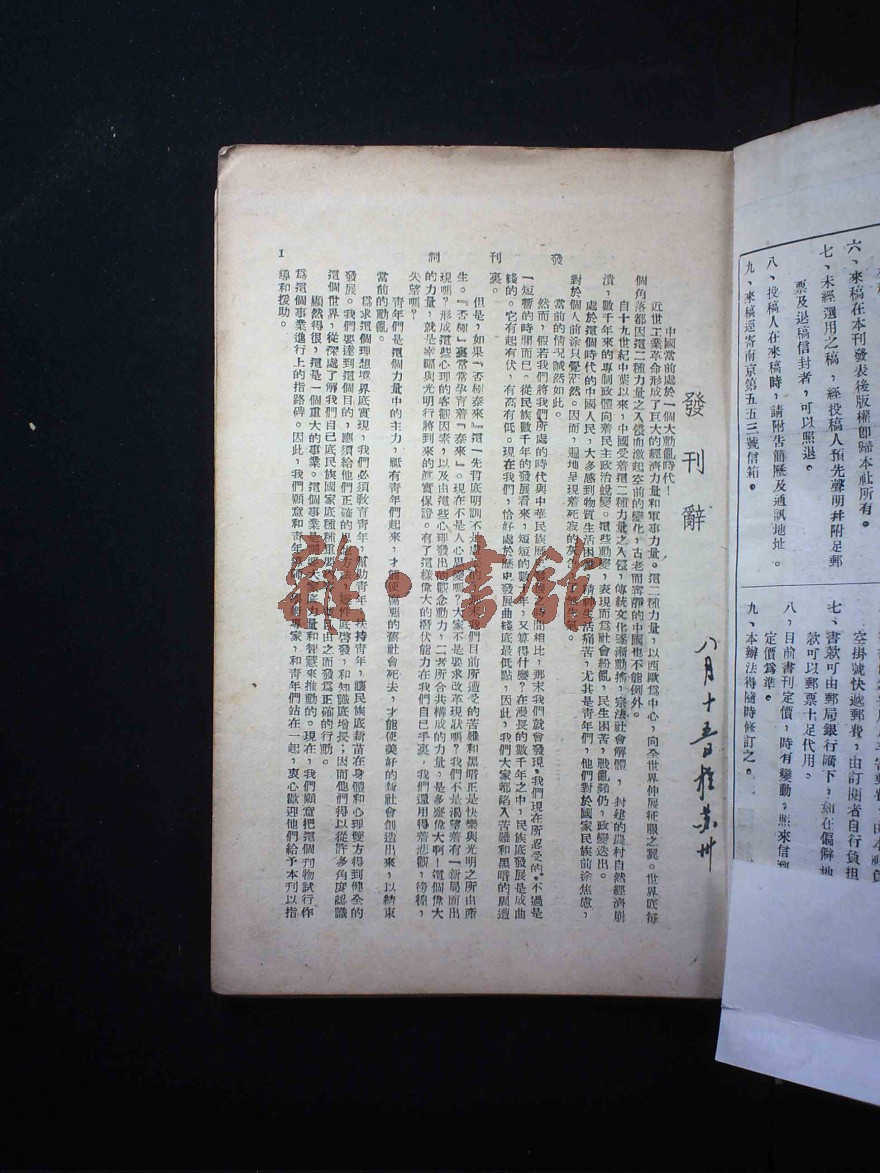 六、來稿在本刊發表後版權即歸本社所有。
七、未經選用之稿，經投稿人預先聲明並附足郵
票及退稿信封者，可以照退。
八、投稿人在來稿時，請附吿簡歷及通訊地址。
九、來稿逕寄南京第五五三號信箱。
七、書款可由郵局銀行滙下，如在偏僻地
款可以郵票十足代用。
八、目前書刊定價，時有變動，照來信到
定價爲準。
九、本辦法得隨時修訂之。
發刊辭
八月十五日於蘇州
中國當前處於一個大動亂時代！
近世工業革命形成了巨大的經濟力量和軍事力量。這二種力量，以西歐爲中心，向全世界伸展征服之翼。世界底每
個角落都因這二種力量之入侵而激起空前的變化，古老而寗靜的中國也不能例外。
自十九世紀中葉以來，中國受着這二種力量之入侵，傳統文化逐漸動搖，宗法社會解體，封建的農村自然經濟崩
潰，數千年來的專制政體向着民主政治蛻變。這些動變，表現而爲社會紛亂，民生困苦，戰亂頻仍，政變迭出。
處於這個時代的中國人民，大多感到物質生活困難，精神生活痛苦，尤其是靑年們，他們對於國家民族前途焦慮，
對於個人前途只覺茫然。因而，遍地呈現着死寂的灰
當前的情況誠然如此。
然而，假若我們將我們所處的時代與中華民族歷史發展之時間相比，那末我們就會發現，我們現在所忍受的，不過是
一短暫的時間而已。從民族數千年的發展看來，短短的數十年，又算得什麼？在漫長的數千年之中，民族底發展是成曲
綫的。它有起有伏，有高有低。現在我們，恰好處於歷史發展曲綫底最低點，因此，我們大家都陷入苦難和黑暗的周遭
裏。
但是，如果『否極泰來』這一先哲底明訓不是 我們目前所遭受的苦難和黑暗正是快樂與光明之所由產
生。『否極』裏常常孕育着『泰來』。現在不是人心思變嗎？大家不是要求改革現狀嗎？我們不是渴望着有一新局面出
現嗎？形成這些心理的客觀因素，以及由這些心理發出的觀念動力，二者所合共構成的力量，是多麼偉大啊！這個偉大
的力量，就是幸福與光明行將到來的眞實保證。有了這樣偉大的潛伏能力在我們自己手裏，我們還用得着悲觀，徬徨，
失望嗎？
靑年們是這個力量中的主力，祗有靑年們起來，才能使腐惡的舊社會死去，才能使美好的新社會創造出來，以結束
當前的動亂。
爲求這個理想境界底實現，我們必須敎育靑年，幫助靑年，扶持靑年，讓民族底新苗在身體和心理雙方得到健全的
發展。我們要達到這個目的，應須給他們正確的思想方法，理性底啓發，和知識底增長；因而他們得以從許多角度認識
這個世界，從深處了解我們自己底民族國家底種種重要 由之而發爲正確的行動。
顯然得很，這是一個重大的事業。這個事業是需要大家底力量和智慧來推動的。現在，我們願意把這個刊物試行作
爲這個事業進行上的指路碑。因此，我們願意和靑年 專家，和靑年們站在一起，衷心歡迎他們給予本刊以指
導和援助。
發刊詞
1
雜·書館